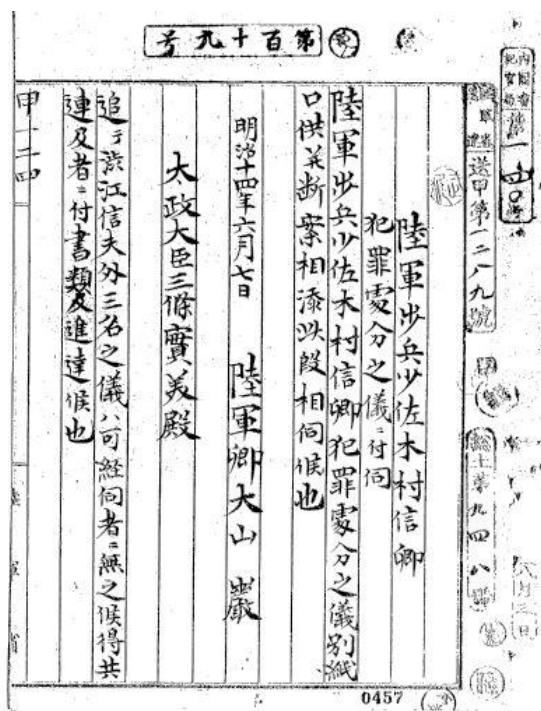 第百十九号
送甲第一二八九號
総土第九四八號
六月三日
陸軍歩兵少佐木村信卿
犯罪處分之儀ニ付伺
陸軍歩兵少佐木村信卿犯罪處分之儀別紙
口供并断案相添此段相伺候也
明治十四年六月七日
陸軍卿大山巖
太政大臣三條實美殿
追テ渋江信夫外三名之儀ハ可経伺者ニ無之候得共
連及者ニ付書類及進達候也
甲一二四
陸軍省
0457